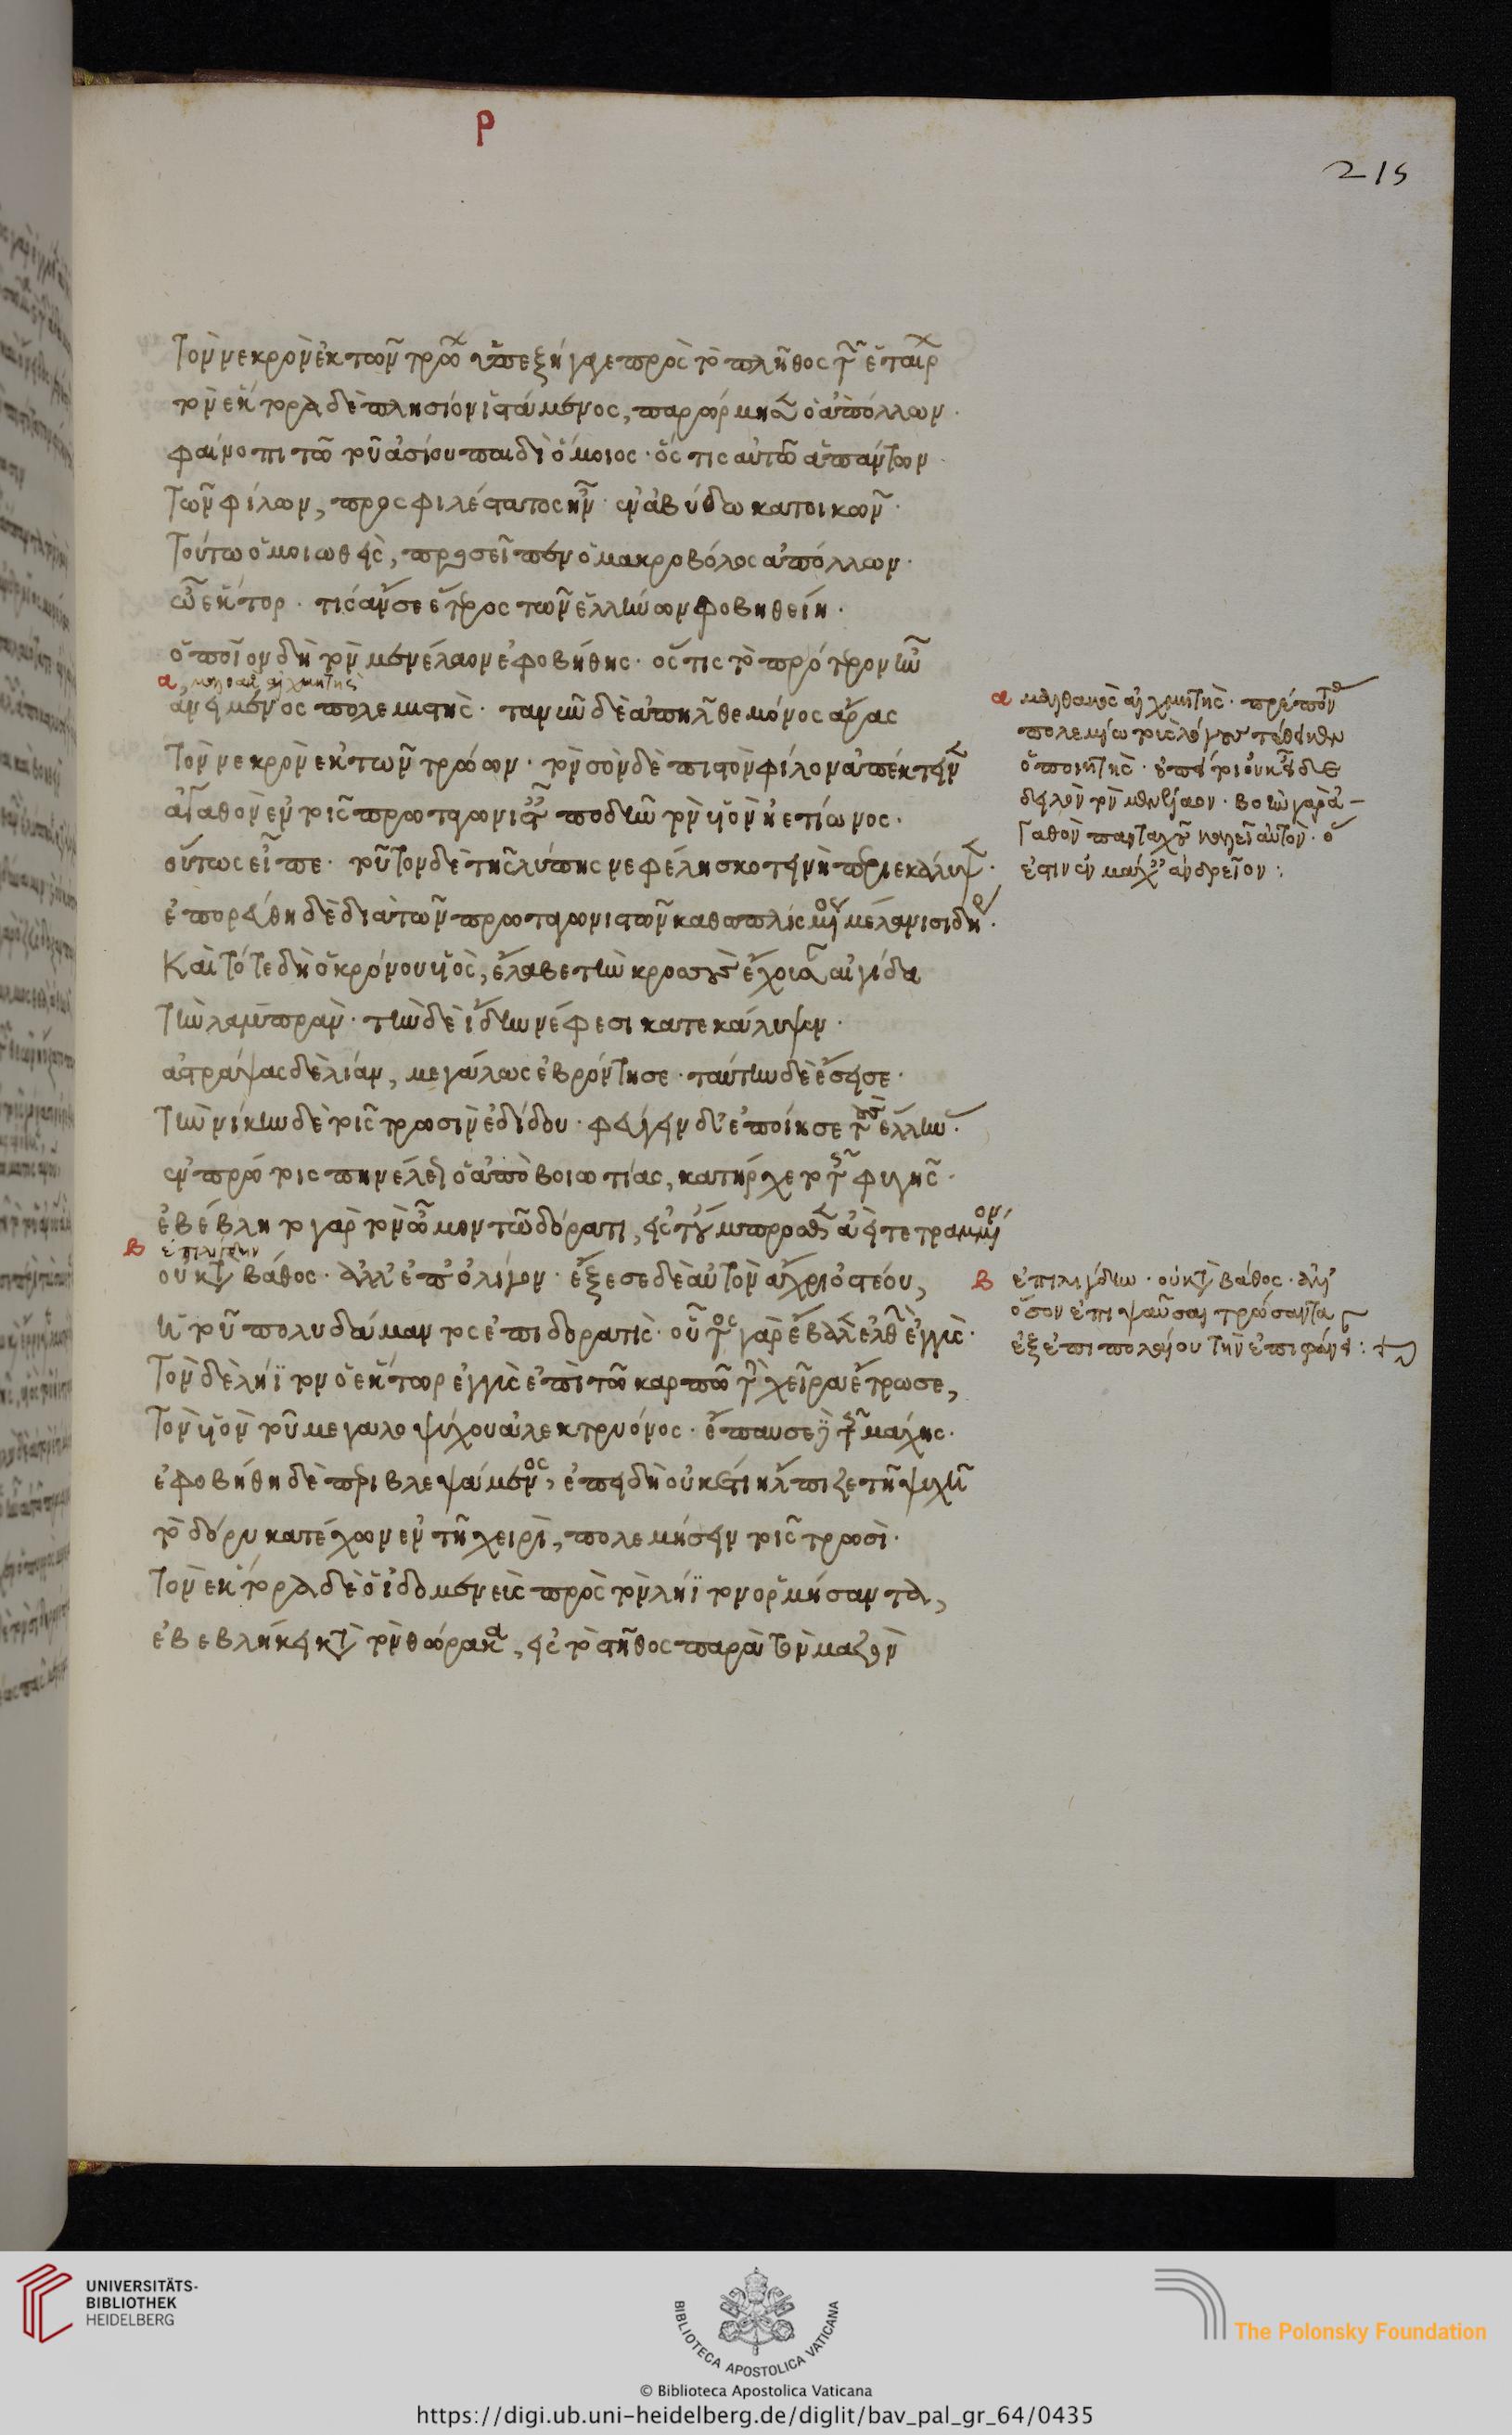 ρ
215
Τὸν νεκρὸν ἐκ τῶν τρώων ὑπεξήγαγε πρὸς τὸ πλῆθος τῶν ἑταίρων
τὸν ἕκτορα δὲ πλησίον ἱστάμενος, παρώρμησεν ὁ ἀπόλλων·
φαίνοπι τῶ τοῦ ἀσίου παιδὶ ὅμοιος· ὅς τις αὐτῶ ἁπάντων
Τῶν φίλων, προσφιλέστατος ἦν ἐν ἀβύδω κατοικῶν·
Τούτω ὁμοιωθεὶς, προσεῖπεν ὁ μακροβόλος ἀπόλλων·
ὦ ἕκτορ· τίς ἄν σε ἕτερος τῶν ἑλλήνων φοβηθείη·
ὁποῖον δὴ τὸν μενέλαον ἐφοβήθης· ὅς τις τὸ πρότερον ἦν
α
ἀνειμένος πολεμιστὴς· τανῦν δὲ ἀπῆλθε μόνος ἄρας
Τὸν νεκρὸν ἐκ τῶν τρώων· τὸν σὸν δὲ πιστὸν φίλον ἀπέκτεινεν
ἀγαθὸν ἐν τοῖς πρωταγωνισταῖς ποδῆν τὸν υἱὸν ἠετίωνος·
οὕτως εἶπε· τοῦτον δὲ τῆς λύπης νεφέλη σκοτεινὴ περιεκάλυψεν·
ἐπορεύθη δὲ διὰ τῶν πρωταγωνιστῶν καθωπλισμένος μέλανι σιδήρω·
Καὶ τότε δὴ ὁ κρόνου υἱὸς, ἔλαβε τὴν κροσσοὺς ἔχουσαν αἰγίδα
Τὴν λαμπρὰν· τὴν δὲ ἴδην νέφεσι κατεκάλυψεν·
ἀστράψας δὲ λίαν, μεγάλως ἐβρόντησε· ταύτην δὲ ἔσεισε·
Τὴν νίκην δὲ τοῖς τρωσὶν ἐδίδου· φεύγειν δὲ ἐποίησε τοὺς ἕλληνας·
ἐν πρώτοις πηνέλεος ὁ ἀπὸ βοιωτίας, κατήρχετο τῆς φυγῆς·
ἐβέβλητο γὰρ τὸν ὦμον τῶ δόρατι, εἰς τοὔμπροσθεν ἀεὶ τετραμμένον
β
οὐ κατὰ βάθος· ἀλλ' ἐπ' ὀλίγον· ἔξεσε δὲ αὐτὸν ἄχρι ὀστέου,
ἡ τοῦ πολυδάμαντος ἐπιδορατὶς· οὗτος γὰρ ἔβαλεν ἐλθὼν ἐγγὺς·
Τὸν δὲ λήϊτον ὁ ἕκτωρ ἐγγὺς ἐπὶ τῶ καρπῶ τὴν χεῖρα ἔτρωσε,
Τὸν υἱὸν τοῦ μεγαλοψύχου ἀλεκτρυόνος· ἔπαυσε δὲ τῆς μάχης·
ἐφοβήθη δὲ περιβλεψάμενος, ἐπειδὴ οὐκέτι ἤλπιζε τῆ ψυχῆ
τὸ δόρυ κατέχων ἐν τῆ χειρὶ, πολεμήσειν τοῖς τρωσὶ·
Τὸν ἕκτορα δὲ ὁ ἰδομενεὺς πρὸς τὸν λήϊτον ὁρμήσαντα,
ἐβεβλήκει κατὰ τὸν θώρακα, εἰς τὸ στῆθος παρὰ τὸν μαζὸν
α μαλθακὸς αἰχμητὴς· πρέπον
πολεμίω τοῖς λόγοις τέθειται
ὁ ποιητὴς· ἐπεί τοι οὐκ οἶδε
δειλὸν τὸν μενέλαον· βοὴν γὰρ ἀ-
γαθὸν πανταχοῦ καλεῖ αὐτὸν· ὅ
ἐστιν ἐν μάχαις ἀνδρεῖον:
β ἐπιλίγδην· οὐ κατὰ βάθος· ἀλλ'
ὅσον ἐπιψαῦσαι τρώσαντα
ἐξεπιπολαίου τὴν ἐπιφάνειαν:
UNIVERSITÄTS-
BIBLIOTHEK
HEIDELBERG
BIBLIOTECA APOSTOLICA VATICANA
The Polonsky Foundation
© Biblioteca Apostolica Vaticana
https://digi.ub.uni-heidelberg.de/diglit/bav_pal_gr_64/0435